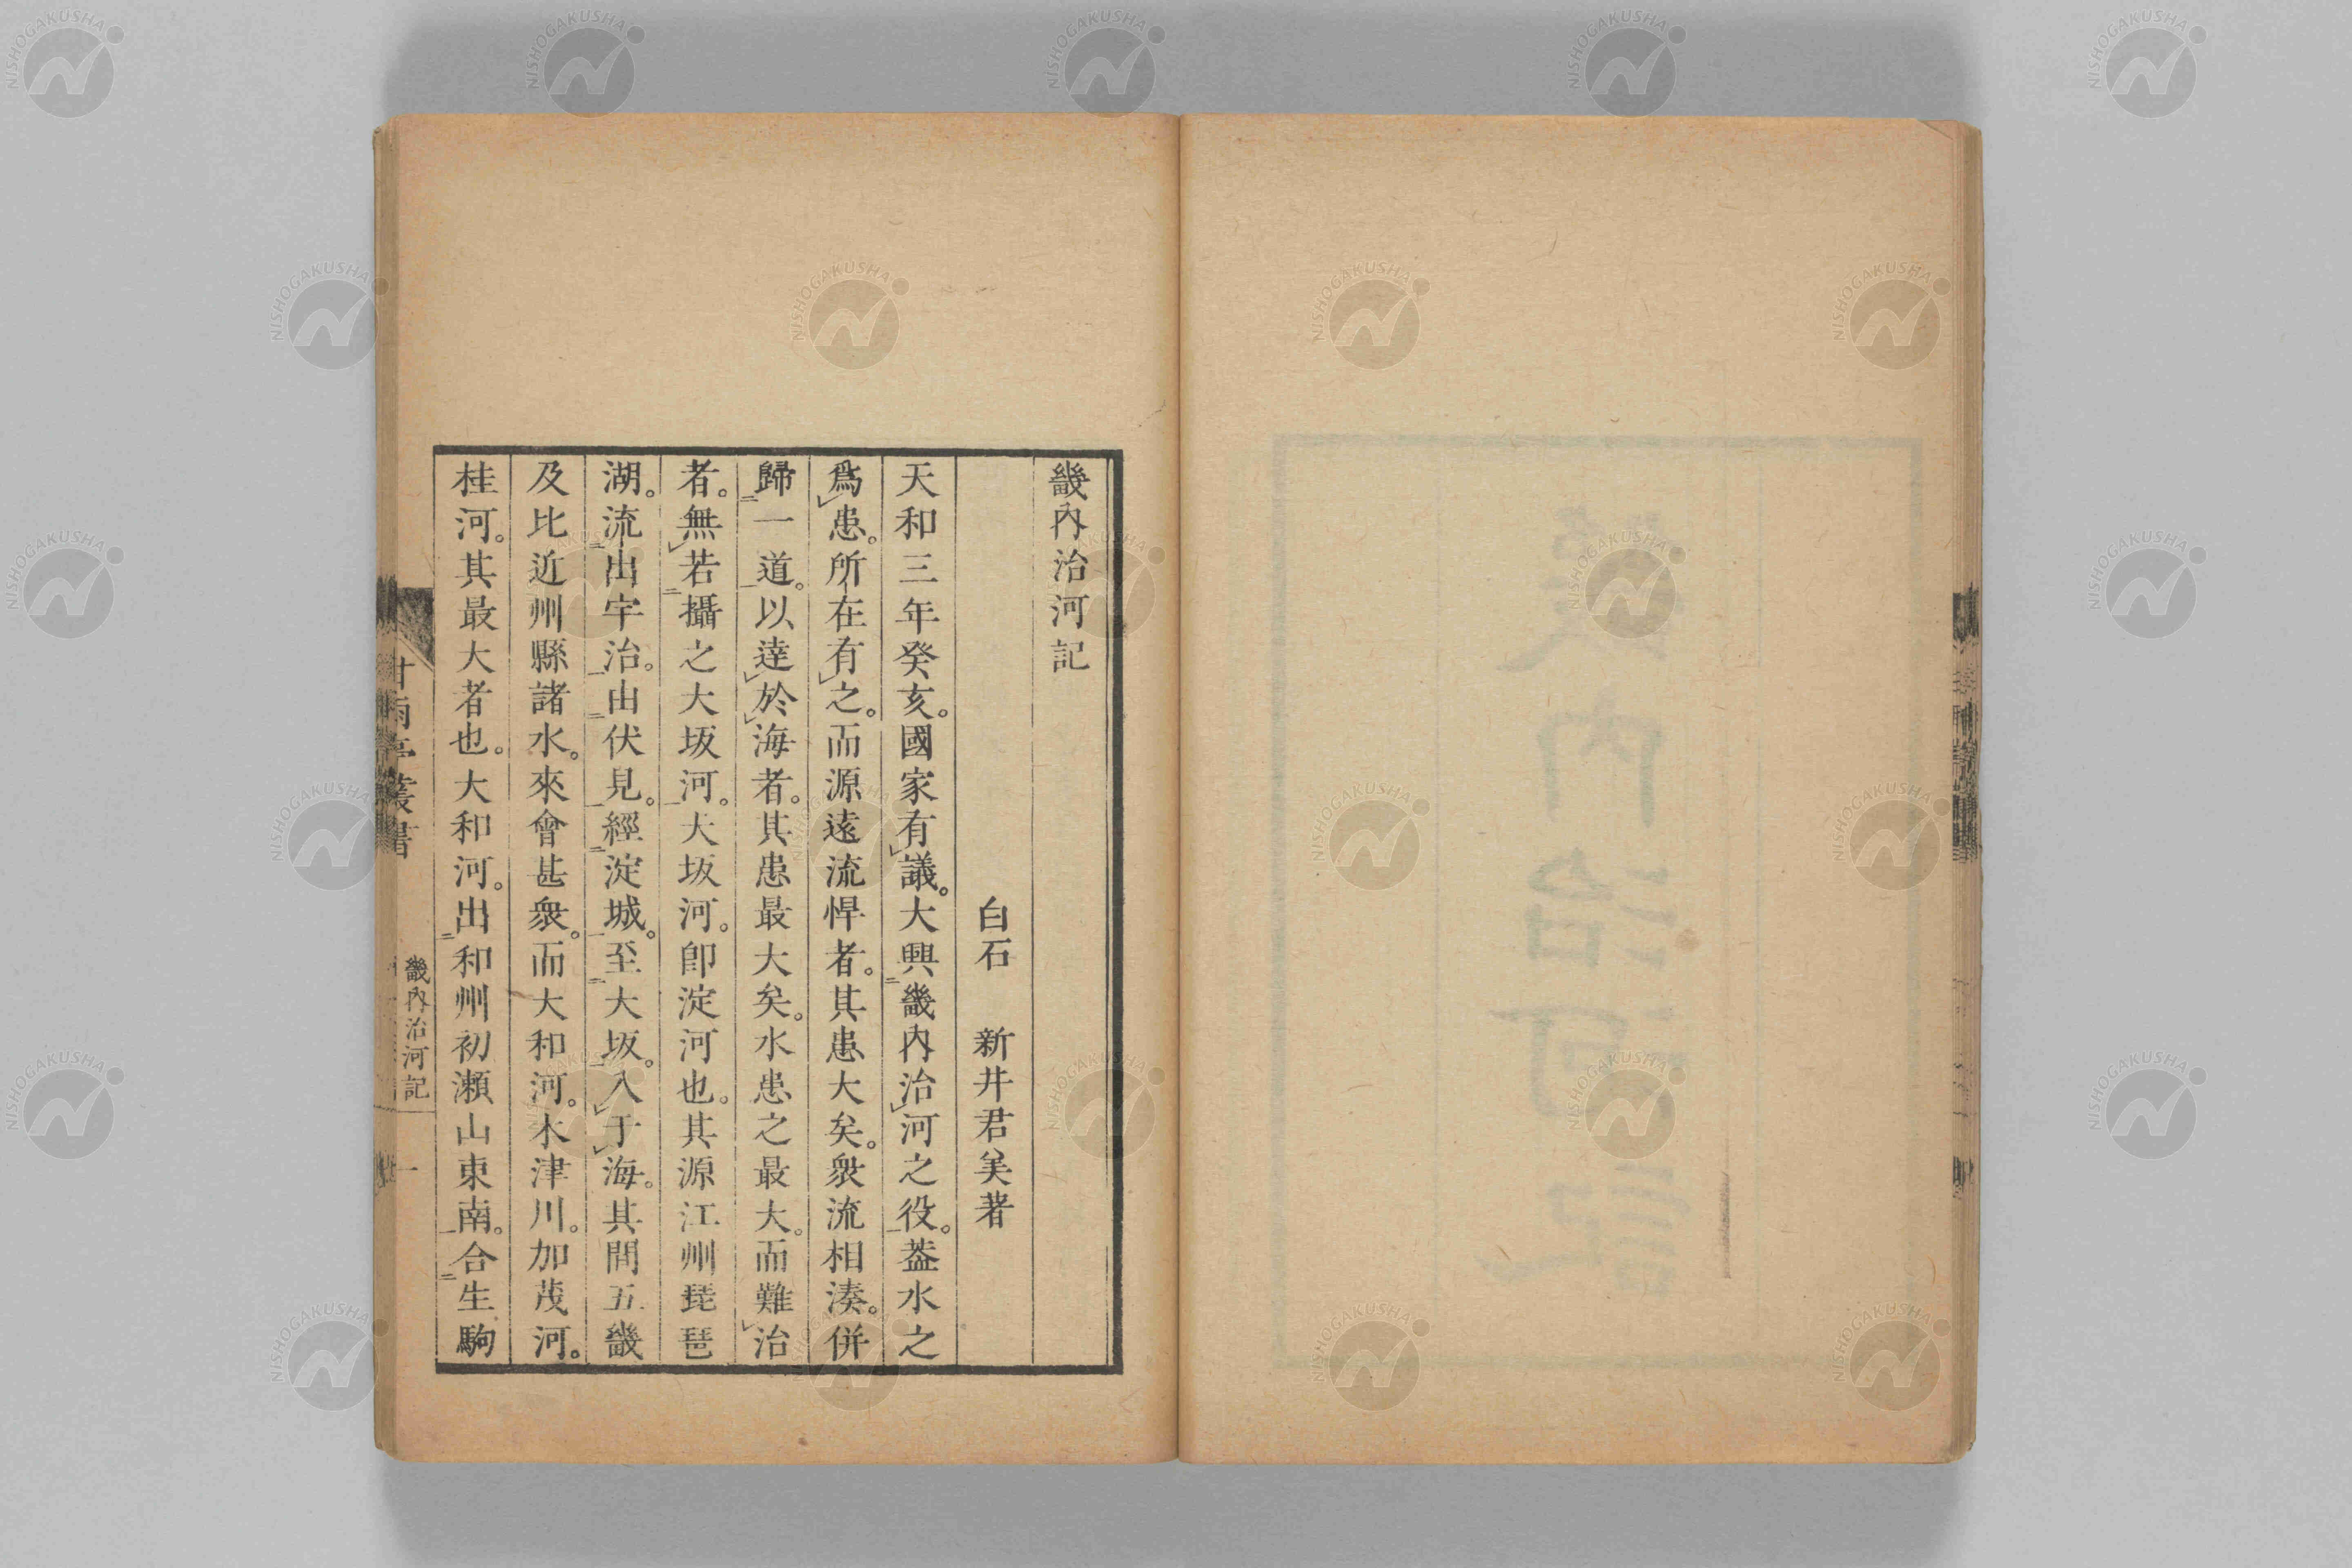 畿內治河記
白石　新井君美著
天和三年癸亥。國家有議。大興畿内治河之役。葢水之
爲患。所在有之。而源遠流悍者。其患大矣。衆流相湊。併
歸一道。以達於海者。其患最大矣。水患之最大。而難治
者。無若攝之大坂河。大坂河。卽淀河也。其源江州琵琶
湖。流出宇治。由伏見。經淀城。至大坂。入于海。其間五畿
及比近州縣諸水。來會甚衆。而大和河。木津川。加茂河。
桂河。其最大者也。大和河。出和州初瀬山東南。合生駒
甘雨亭叢書
畿內治河記
一
NISHOGAKUSHA